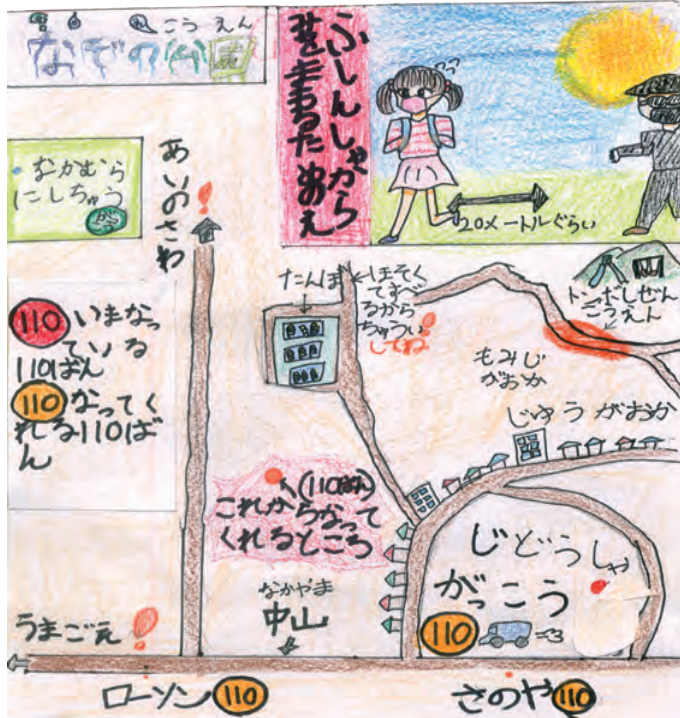 こうえん
なぞの公園
ふしんしゃから
身をまもるため
20メートルぐらい
なかむら
にしちゅう
がっ
あいのさわ
!
110 いまなっ
ている
110ばん
110 なってく
れる110ば
ん
たんぼ
ほそく
てすべ
るから
ちゅうい
してね!
トンボしぜん
こうえん
もみじ
がおか
じゆうがおか
(110ばん)
これからなって
くれるところ
じどうしゃ
がっこう
110
なかやま
中山
うまごえ!
ローソン 110
さのや 110